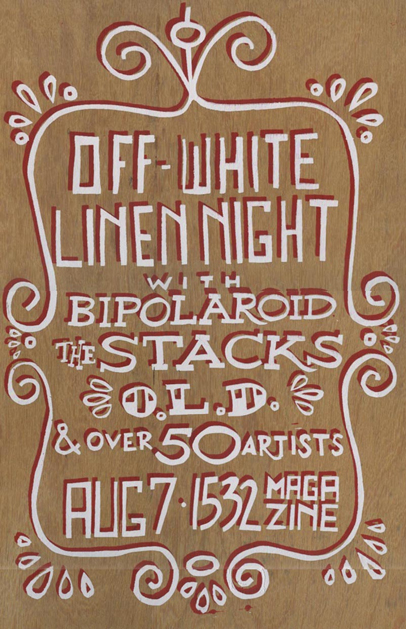 OFF-WHITE
LINEN NIGHT
WITH
BIPOLAROID
THE STACKS
O.L.D.
& OVER 50 ARTISTS
AUG 7 · 1532 MAGAZINE